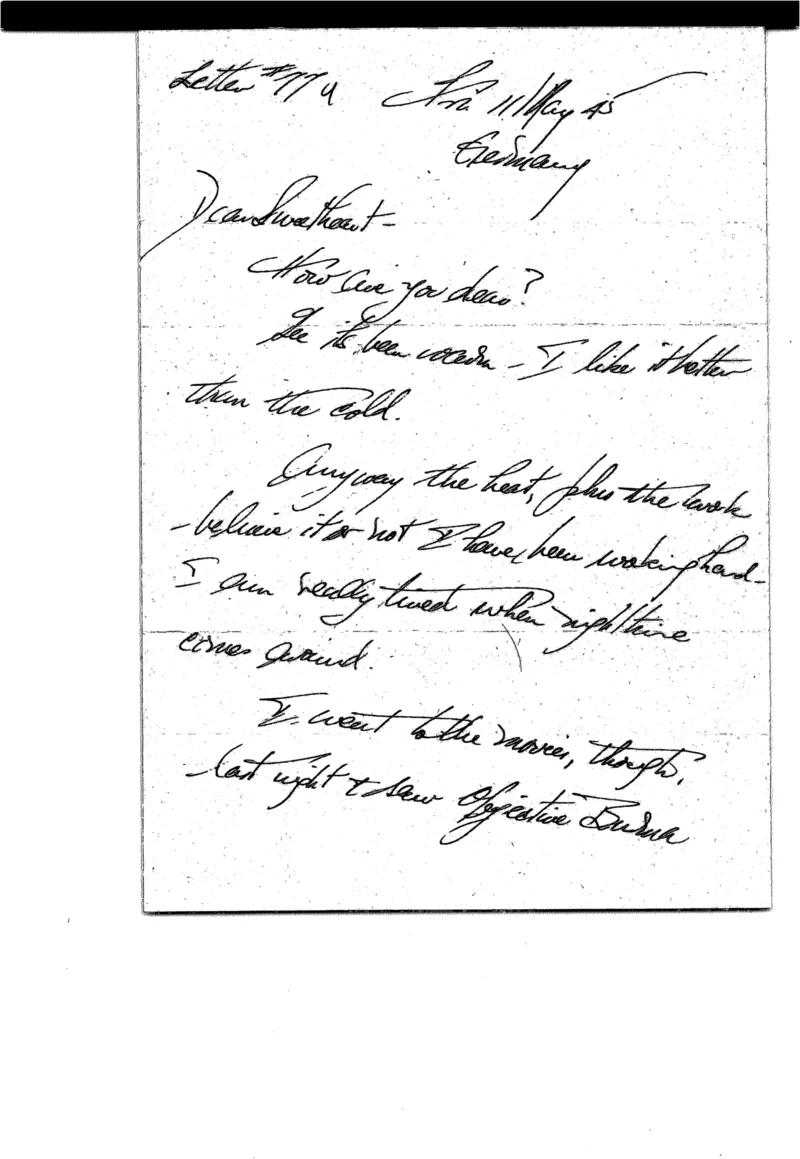 Letter #77 Fri 11 May 45
Germany
Dear Sweetheart -
How are you dear?
Gee its been warm - I like it better
than the cold.
Anyway the heat, plus the work
- believe it or not I have been working hard -
I am really tired when nighttime
comes around.
I went to the movies, though,
last night & saw Objective Burma